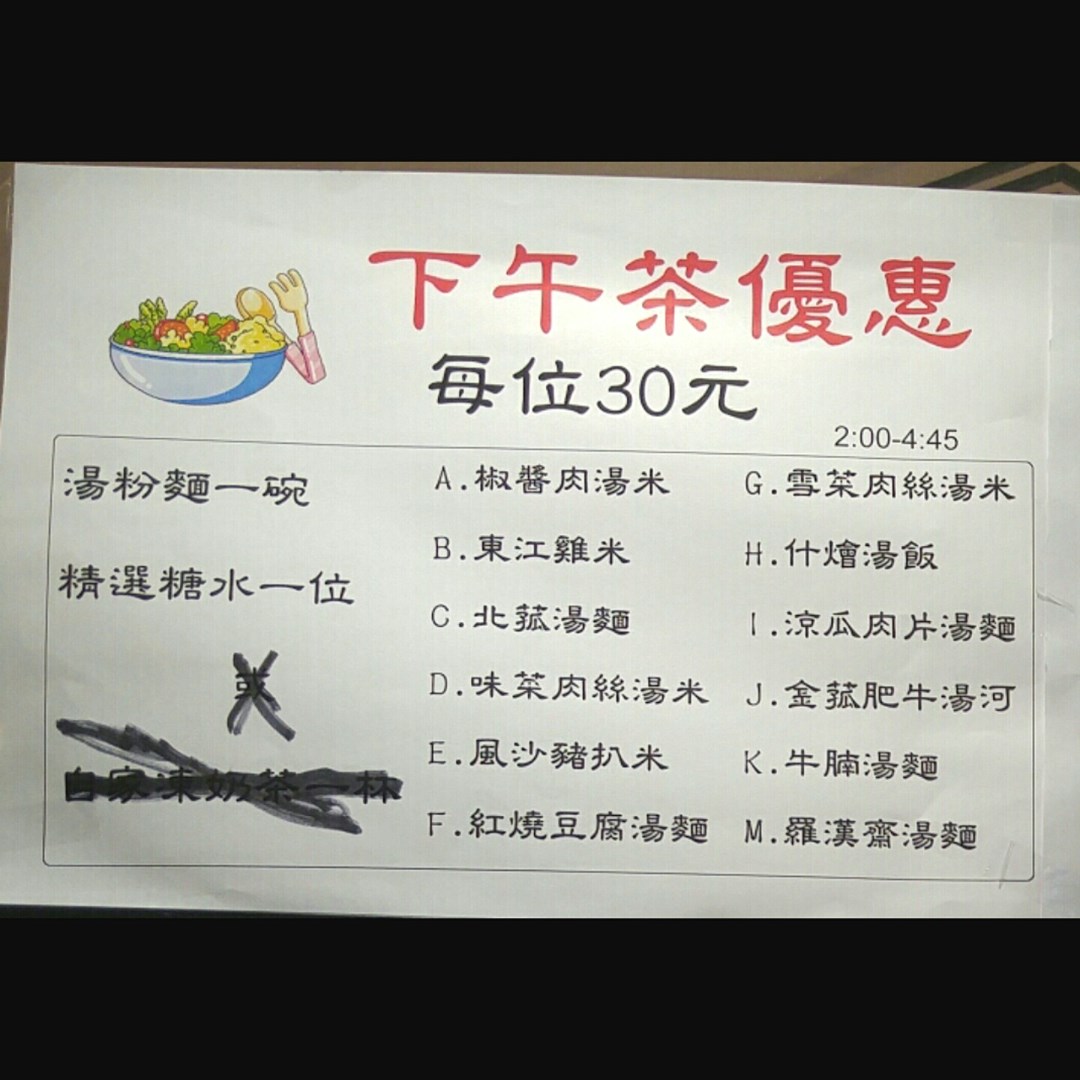 下午茶優惠
每位30元
2:00-4:45
湯粉麵一碗
精選糖水一位
或
自家凍奶茶一杯
A.椒醬肉湯米
B.東江雞米
C.北菰湯麵
D.味菜肉絲湯米
E.風沙豬扒米
F.紅燒豆腐湯麵
G.雪菜肉絲湯米
H.什燴湯飯
I.涼瓜肉片湯麵
J.金菰肥牛湯河
K.牛腩湯麵
M.羅漢齋湯麵